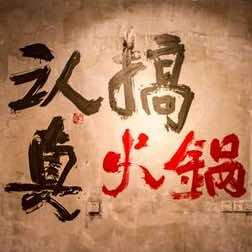 认真
搞
火鍋